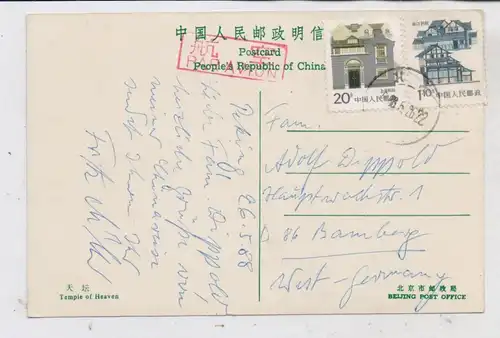 中国人民邮政明信
Postcard
People's Republic of China
航空
PAR AVION
20分 中国人民邮政
110分 中国人民邮政
Peking 26.5.88
Fam. Dippold
herzliche Grüße von
meiner Chinareise
Fam.
Adolf Dippold
Hauptwachstr. 1
D 86 Bamberg
West-Germany
天坛
Temple of Heaven
北京市邮政局
BEIJING POST OFFICE